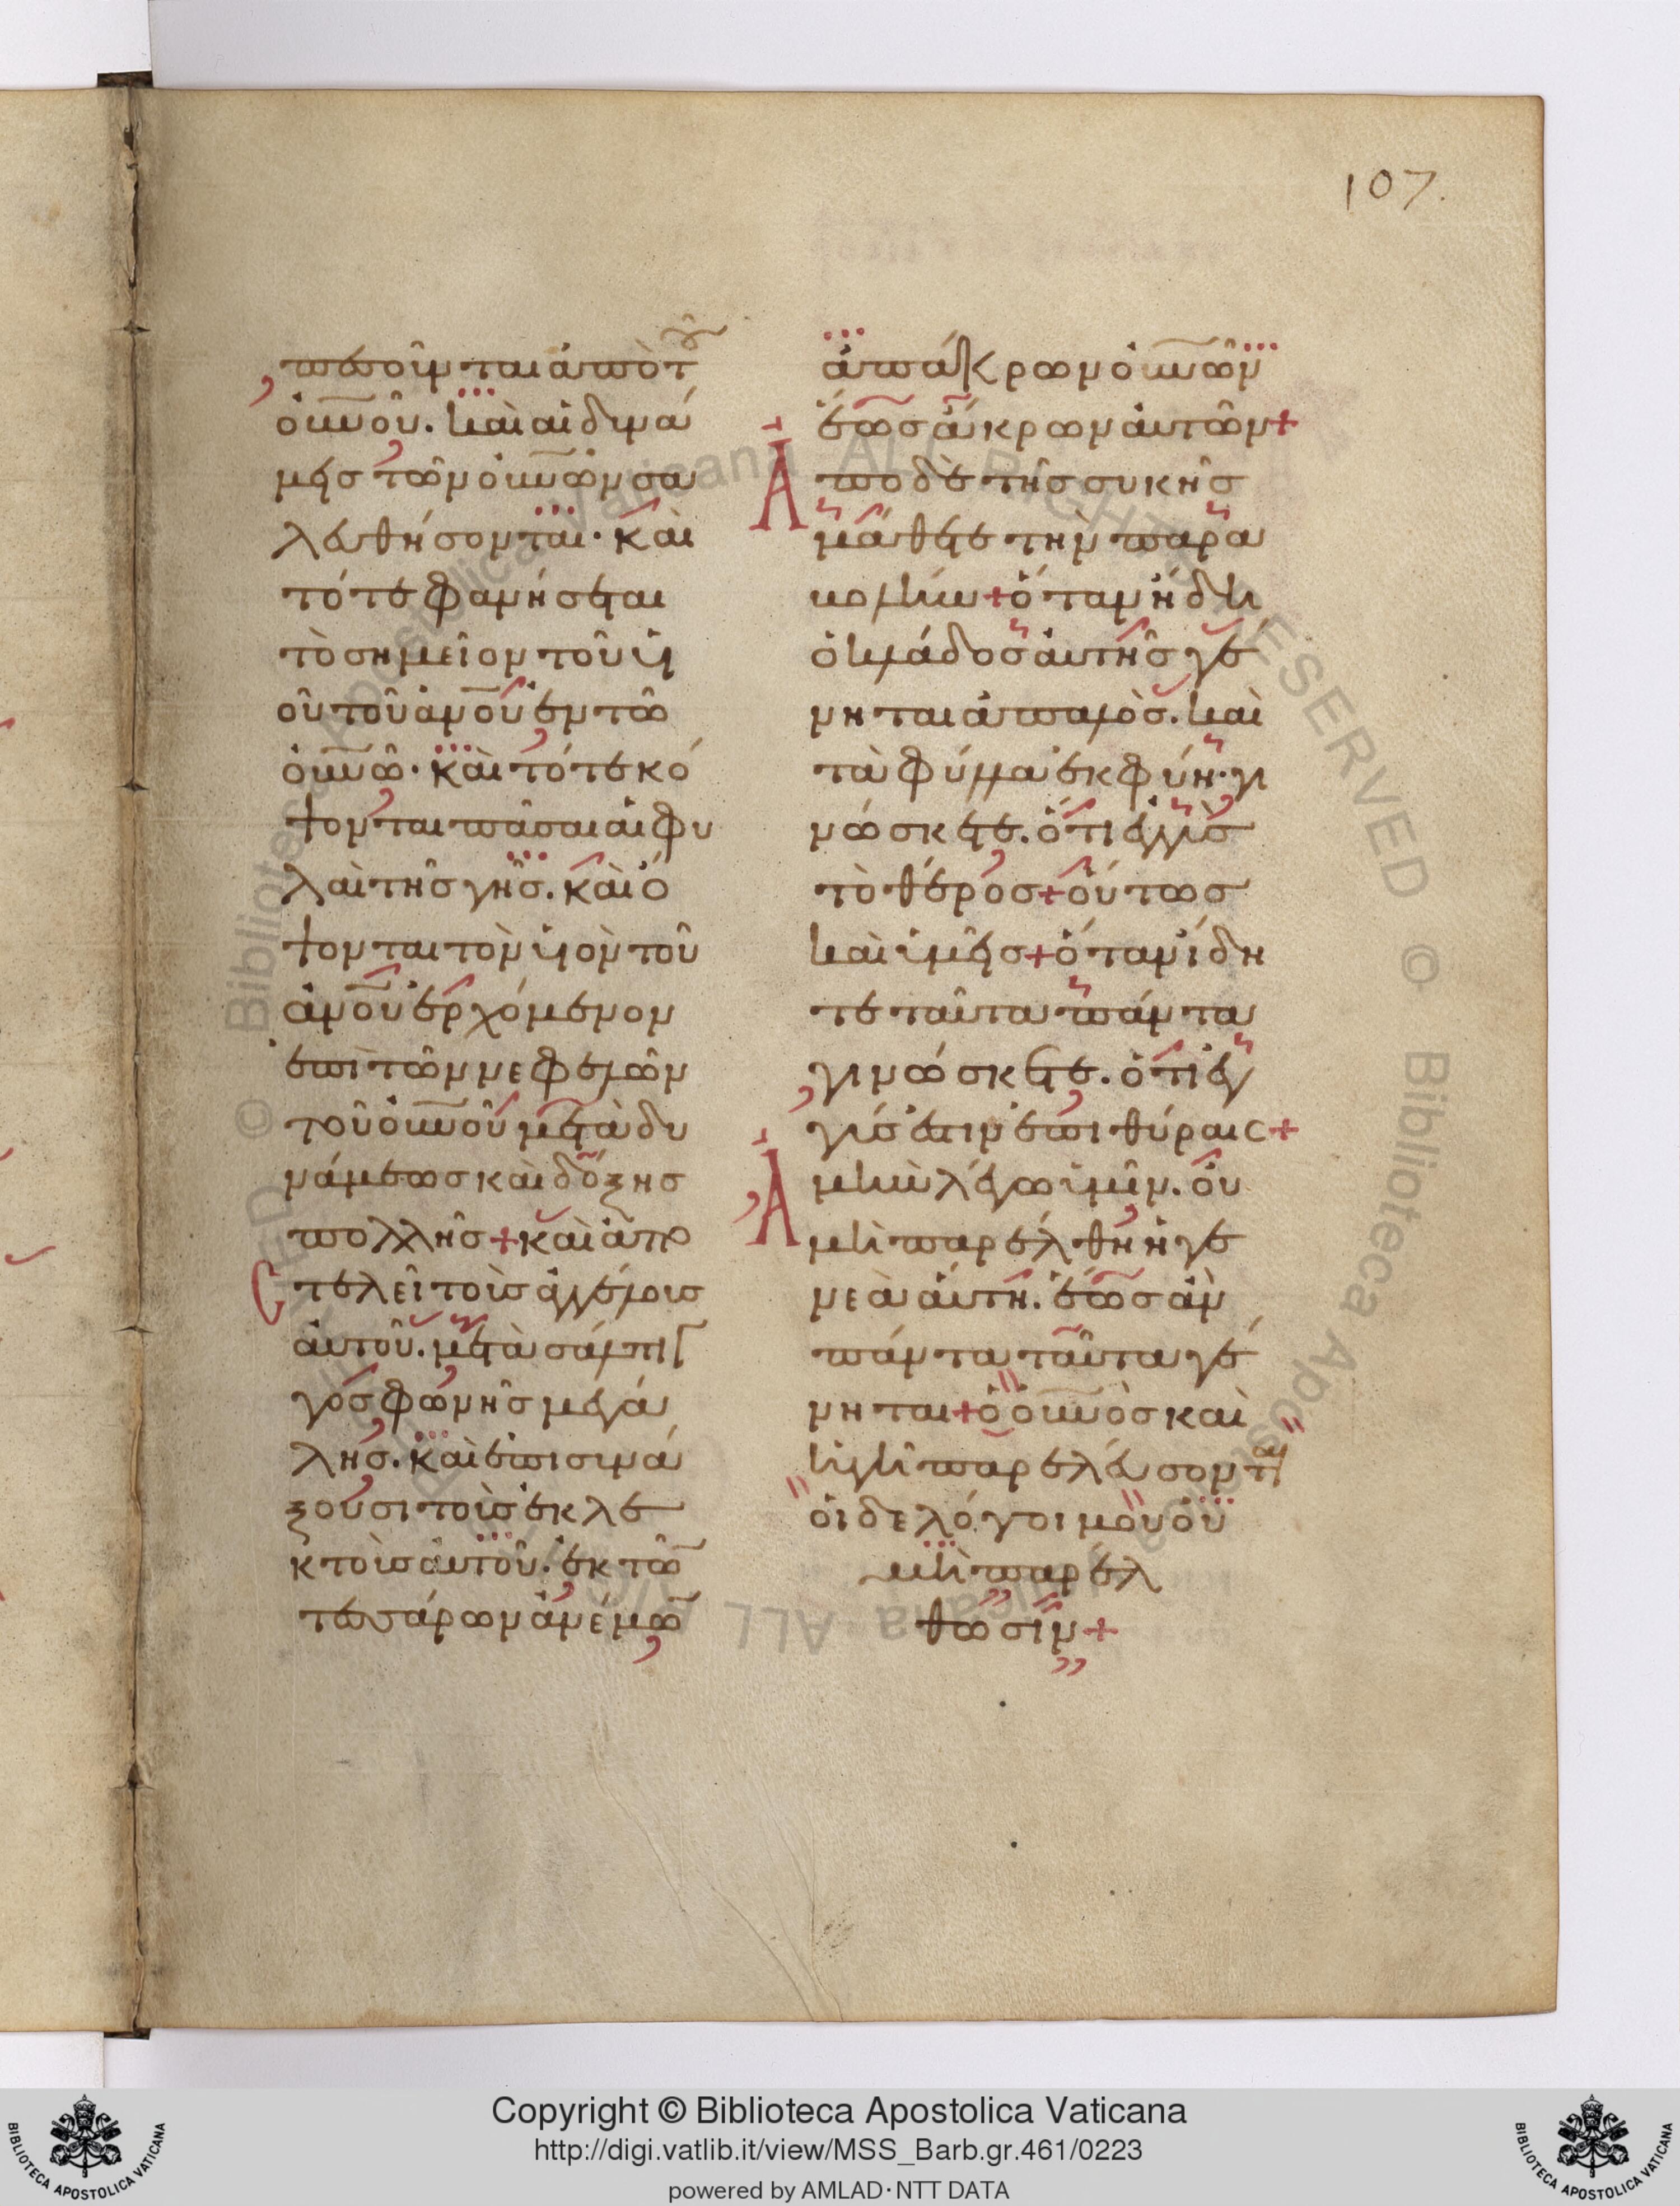 107.
πεσοῦνται ἀπὸ τοῦ
οὐνοῦ. καὶ αἱ δυνά
μεις τῶν οὐνῶν σα
λευθήσονται· καὶ
τότε φανήσεται
τὸ σημεῖον τοῦ υἱ
οῦ τοῦ ἀνοῦ ἐν τῶ
οὐνῶ· καὶ τότε κό
ψονται πᾶσαι αἱ φυ
λαὶ τῆς γῆς. καὶ ὄ
ψονται τὸν υἱὸν τοῦ
ἀνοῦ ἐρχόμενον
ἐπὶ τῶν νεφελῶν
τοῦ οὐνοῦ μετὰ δυ
νάμεως καὶ δόξης
πολλῆς + καὶ ἀπο
στελεῖ τοὺς ἀγγέλους
αὐτοῦ. μετὰ σάλπιγ
γος φωνῆς μεγά
λης. καὶ ἐπισυνά
ξουσι τοὺς ἐκλε
κτοὺς αὐτοῦ. ἐκ τῶν
τεσσάρων ἀνέμων
ἀπάκρων οὐνῶν
ἕως ἄκρων αὐτῶν +
Ἀπὸ δὲ τῆς συκῆς
μάθετε τὴν παρα
βολήν + ὅταν ἤδη
ὁ κλάδος αὐτῆς γέ
νηται ἁπαλὸς. καὶ
τὰ φύλλα ἐκφύη. γι
νώσκετε. ὅτι ἐγγὺς
τὸ θέρος + οὕτως
καὶ ὑμεῖς + ὅταν ἴδη
τε ταῦτα πάντα
γινώσκετε. ὅτι ἐγ
γύς ἐστιν ἐπὶ θύραις +
Ἀμὴν λέγω ὑμῖν. οὐ
μὴ παρέλθη ἡ γε
νεὰ αὕτη. ἕως ἂν
πάντα ταῦτα γέ
νηται + ὁ οὐνὸς καὶ
ἡ γῆ παρελεύσονται
οἱ δὲ λόγοι μου οὐ
μὴ παρέλ
θωσιν +
Copyright © Biblioteca Apostolica Vaticana
http://digi.vatlib.it/view/MSS_Barb.gr.461/0223
powered by AMLAD·NTT DATA